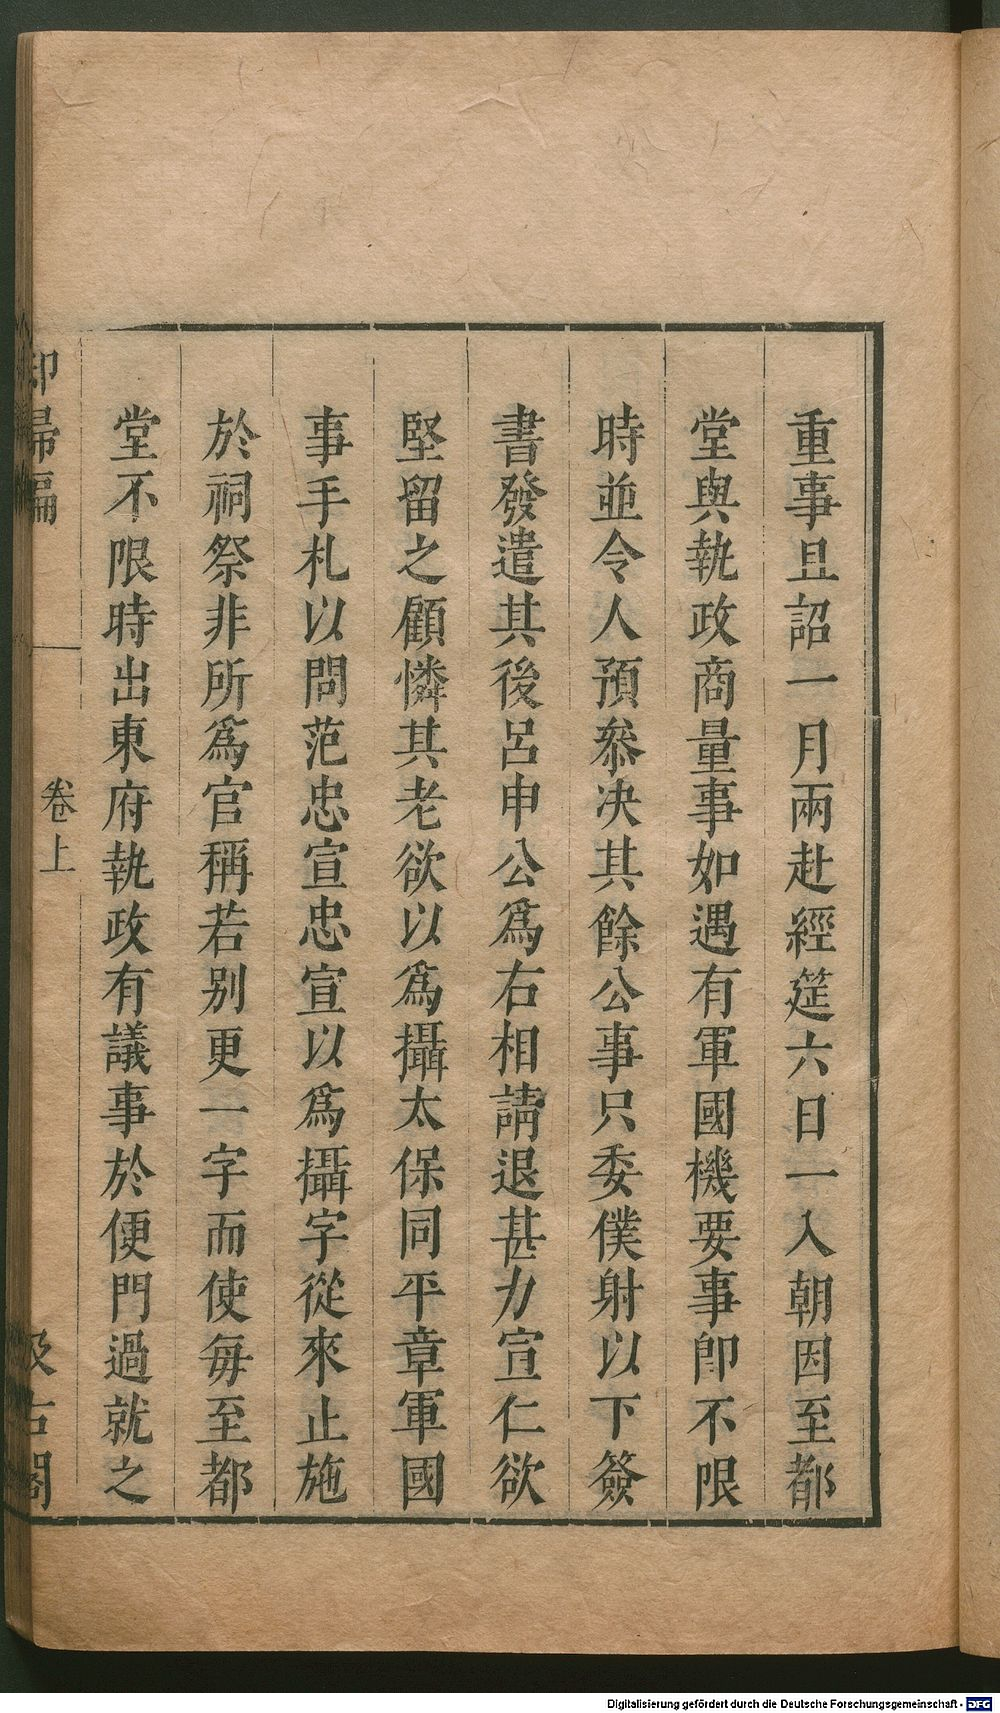 重事且詔一月兩赴經筵六日一入朝因至都
堂與執政商量事如遇有軍國機要事卽不限
時並令人預叅决其餘公事只委僕射以下簽
書發遣其後呂申公爲右相請退甚力宣仁欲
堅留之顧憐其老欲以爲攝太保同平章軍國
事手札以問范忠宣忠宣以爲攝字從來止施
於祠祭非所爲官稱若别更一字而使每至都
堂不限時出東府執政有議事於便門過就之
卻掃編
卷上
汲古閣
Digitalisierung gefördert durch die Deutsche Forschungsgemeinschaft - DFG